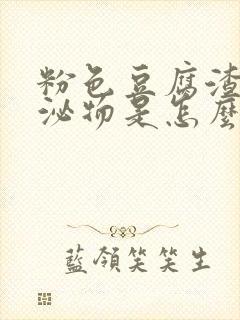 粉色豆腐渣
泌物是怎麽
藍領笑笑生